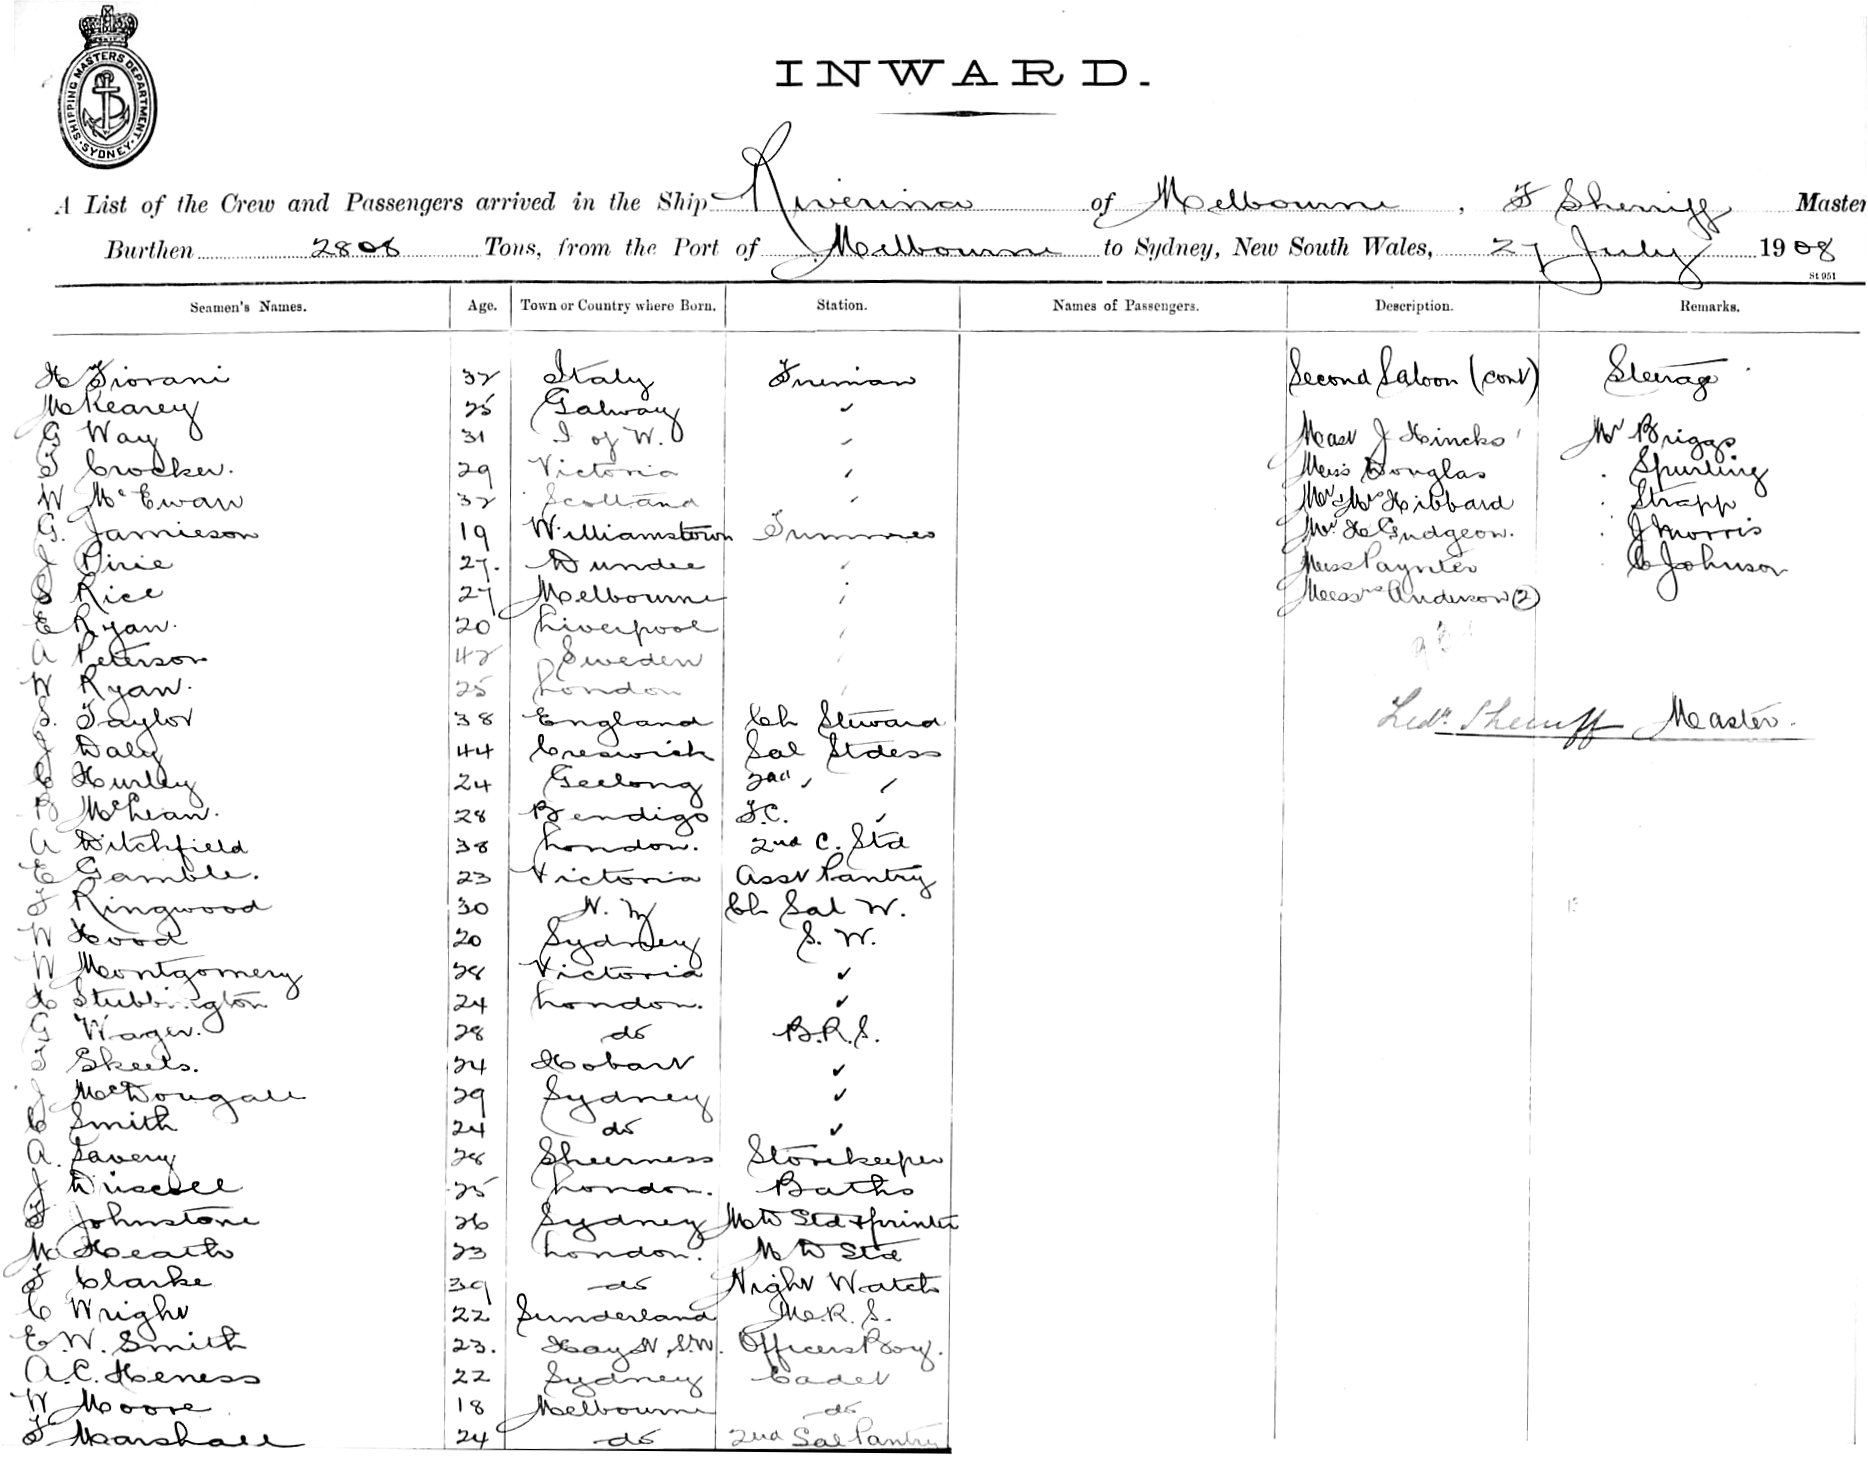 SHIPPING MASTERS DEPARTMENT. SYDNEY.
INWARD.
A List of the Crew and Passengers arrived in the Ship Riverina of Melbourne, F Sherriff Master
Burthen 2808 Tons, from the Port of Melbourne to Sydney, New South Wales, 27 July 1908
St 951
Seamen's Names. Age. Town or Country where Born. Station. Names of Passengers. Description. Remarks.
H Fiorani 32 Italy Fireman Second Saloon (cont) Steerage
McKearey 25 Galway "
G Way 31 I of W. " Mast J Hincks Mr Briggs
T Crocker. 29 Victoria " Miss Douglas " Spurling
W McEwan 32 Scotland " Mr & Mrs Hibbard " Strapp
G. Jamieson 19 Williamstown Trimmers Mr H Gudgeon. " J Morris
J Pirie 27. Dundee " Miss Paynter " C Johnson
S Rice 27 Melbourne " Messrs Anderson (2)
E Ryan. 20 Liverpool "
A Peterson 42 Sweden "
W Ryan. 25 London "
S. Taylor 38 England Ch Steward Fedk Sherriff Master.
J Daly 44 Creswick Sal Stdess
C Hurley 24 Geelong 2nd " "
B McLean. 28 Bendigo F.C. "
A Ditchfield 38 London. 2nd C. Std
E Gamble. 23 Victoria Asst Pantry
F Ringwood 30 N. Z Ch Sal W.
W Hood 20 Sydney S. W.
W Montgomery 28 Victoria "
H Stubbington 24 London. "
G Wager. 28 do B.R.S.
T Skeels. 24 Hobart "
J McDougall 29 Sydney "
C Smith 24 do "
A. Savery 28 Sheerness Storekeeper
J Driscoll 25 London. Baths
F Johnstone 26 Sydney M W Std & printer
M Heath 23 London. M W Std
F Clarke 39 do Night Watch
C Wright 22 Sunderland M.R.S.
E. W. Smith 23. Hay N.S.W. Officers Boy.
A. C. Heness 22 Sydney Cadet
W Moore 18 Melbourne do
F Marshall 24 do 2nd Sal Pantry